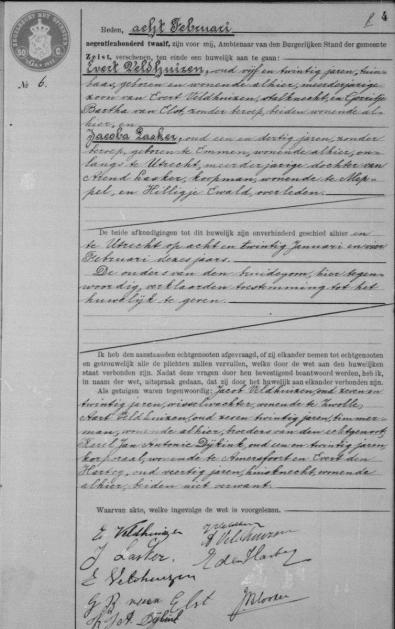 4
Heden, acht Februari
negentienhonderd twaalf, zijn voor mij, Ambtenaar van den Burgerlijken Stand der gemeente
Zeist, verschenen, ten einde een huwelijk aan te gaan:
Evert Veldhuizen, oud vijf en twintig jaren, tuin-
baas, geboren en wonende alhier, meerderjarige
zoon van Evert Veldhuizen, stalknecht, en Gerritje
Bartha van Elst, zonder beroep, beiden wonende al-
hier, en
No 6.
Jacoba Lasker, oud een en dertig jaren, zonder
beroep, geboren te Emmen, wonende alhier, on-
langs te Utrecht, meerderjarige dochter van
Arend Lasker, koopman, wonende te Mep-
pel, en Hilligje Ewald, overleden.
De beide afkondigingen tot dit huwelijk zijn onverhinderd geschied alhier en
te Utrecht op acht en twintig Januari en vier
Februari dezes jaars.
De ouders van den bruidegom, hier tegen-
woordig, verklaarden toestemming tot het
huwelijk te geven.
Ik heb den aanstaanden echtgenooten afgevraagd, of zij elkander nemen tot echtgenooten
en getrouwelijk alle de plichten zullen vervullen, welke door de wet aan den huwelijken
staat verbonden zijn. Nadat deze vragen door hen bevestigend beantwoord werden, heb ik,
in naam der wet, uitspraak gedaan, dat zij door het huwelijk aan elkander verbonden zijn.
Als getuigen waren tegenwoordig: Jacob Veldhuizen, oud zeven en
twintig jaren, wisselwachter, wonende te Zwolle,
Aart Veldhuizen, oud zeven twintig jaren, timmer-
man, wonende alhier, broeders van den echtgenoot,
Karel Jan Antonie Dijkink, oud een en twintig jaren,
korporaal, wonende te Amersfoort en Evert den
Hertog, oud veertig jaren, huisknecht, wonende
alhier, beiden niet verwant.
Waarvan akte, welke ingevolge de wet is voorgelezen.
E Veldhuizen
A Veldhuizen
J Lasker.
E den Hartog
E Veldhuizen
G B van Elst